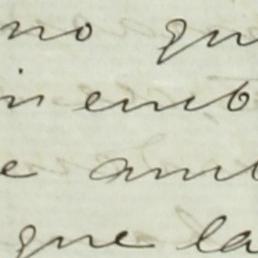 no qu
in emb
e amb
que la